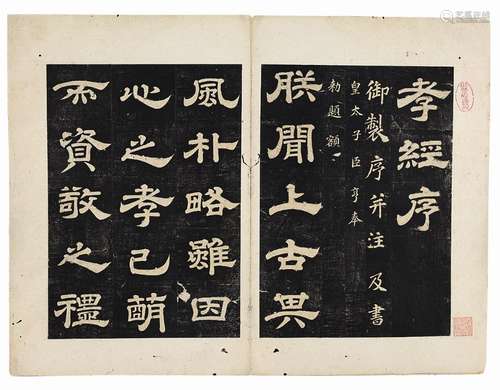 孝經序
御製序并注及書
皇太子臣亨奉
勅題額
朕聞上古其
風朴略雖因
心之孝已萌
而資敬之禮